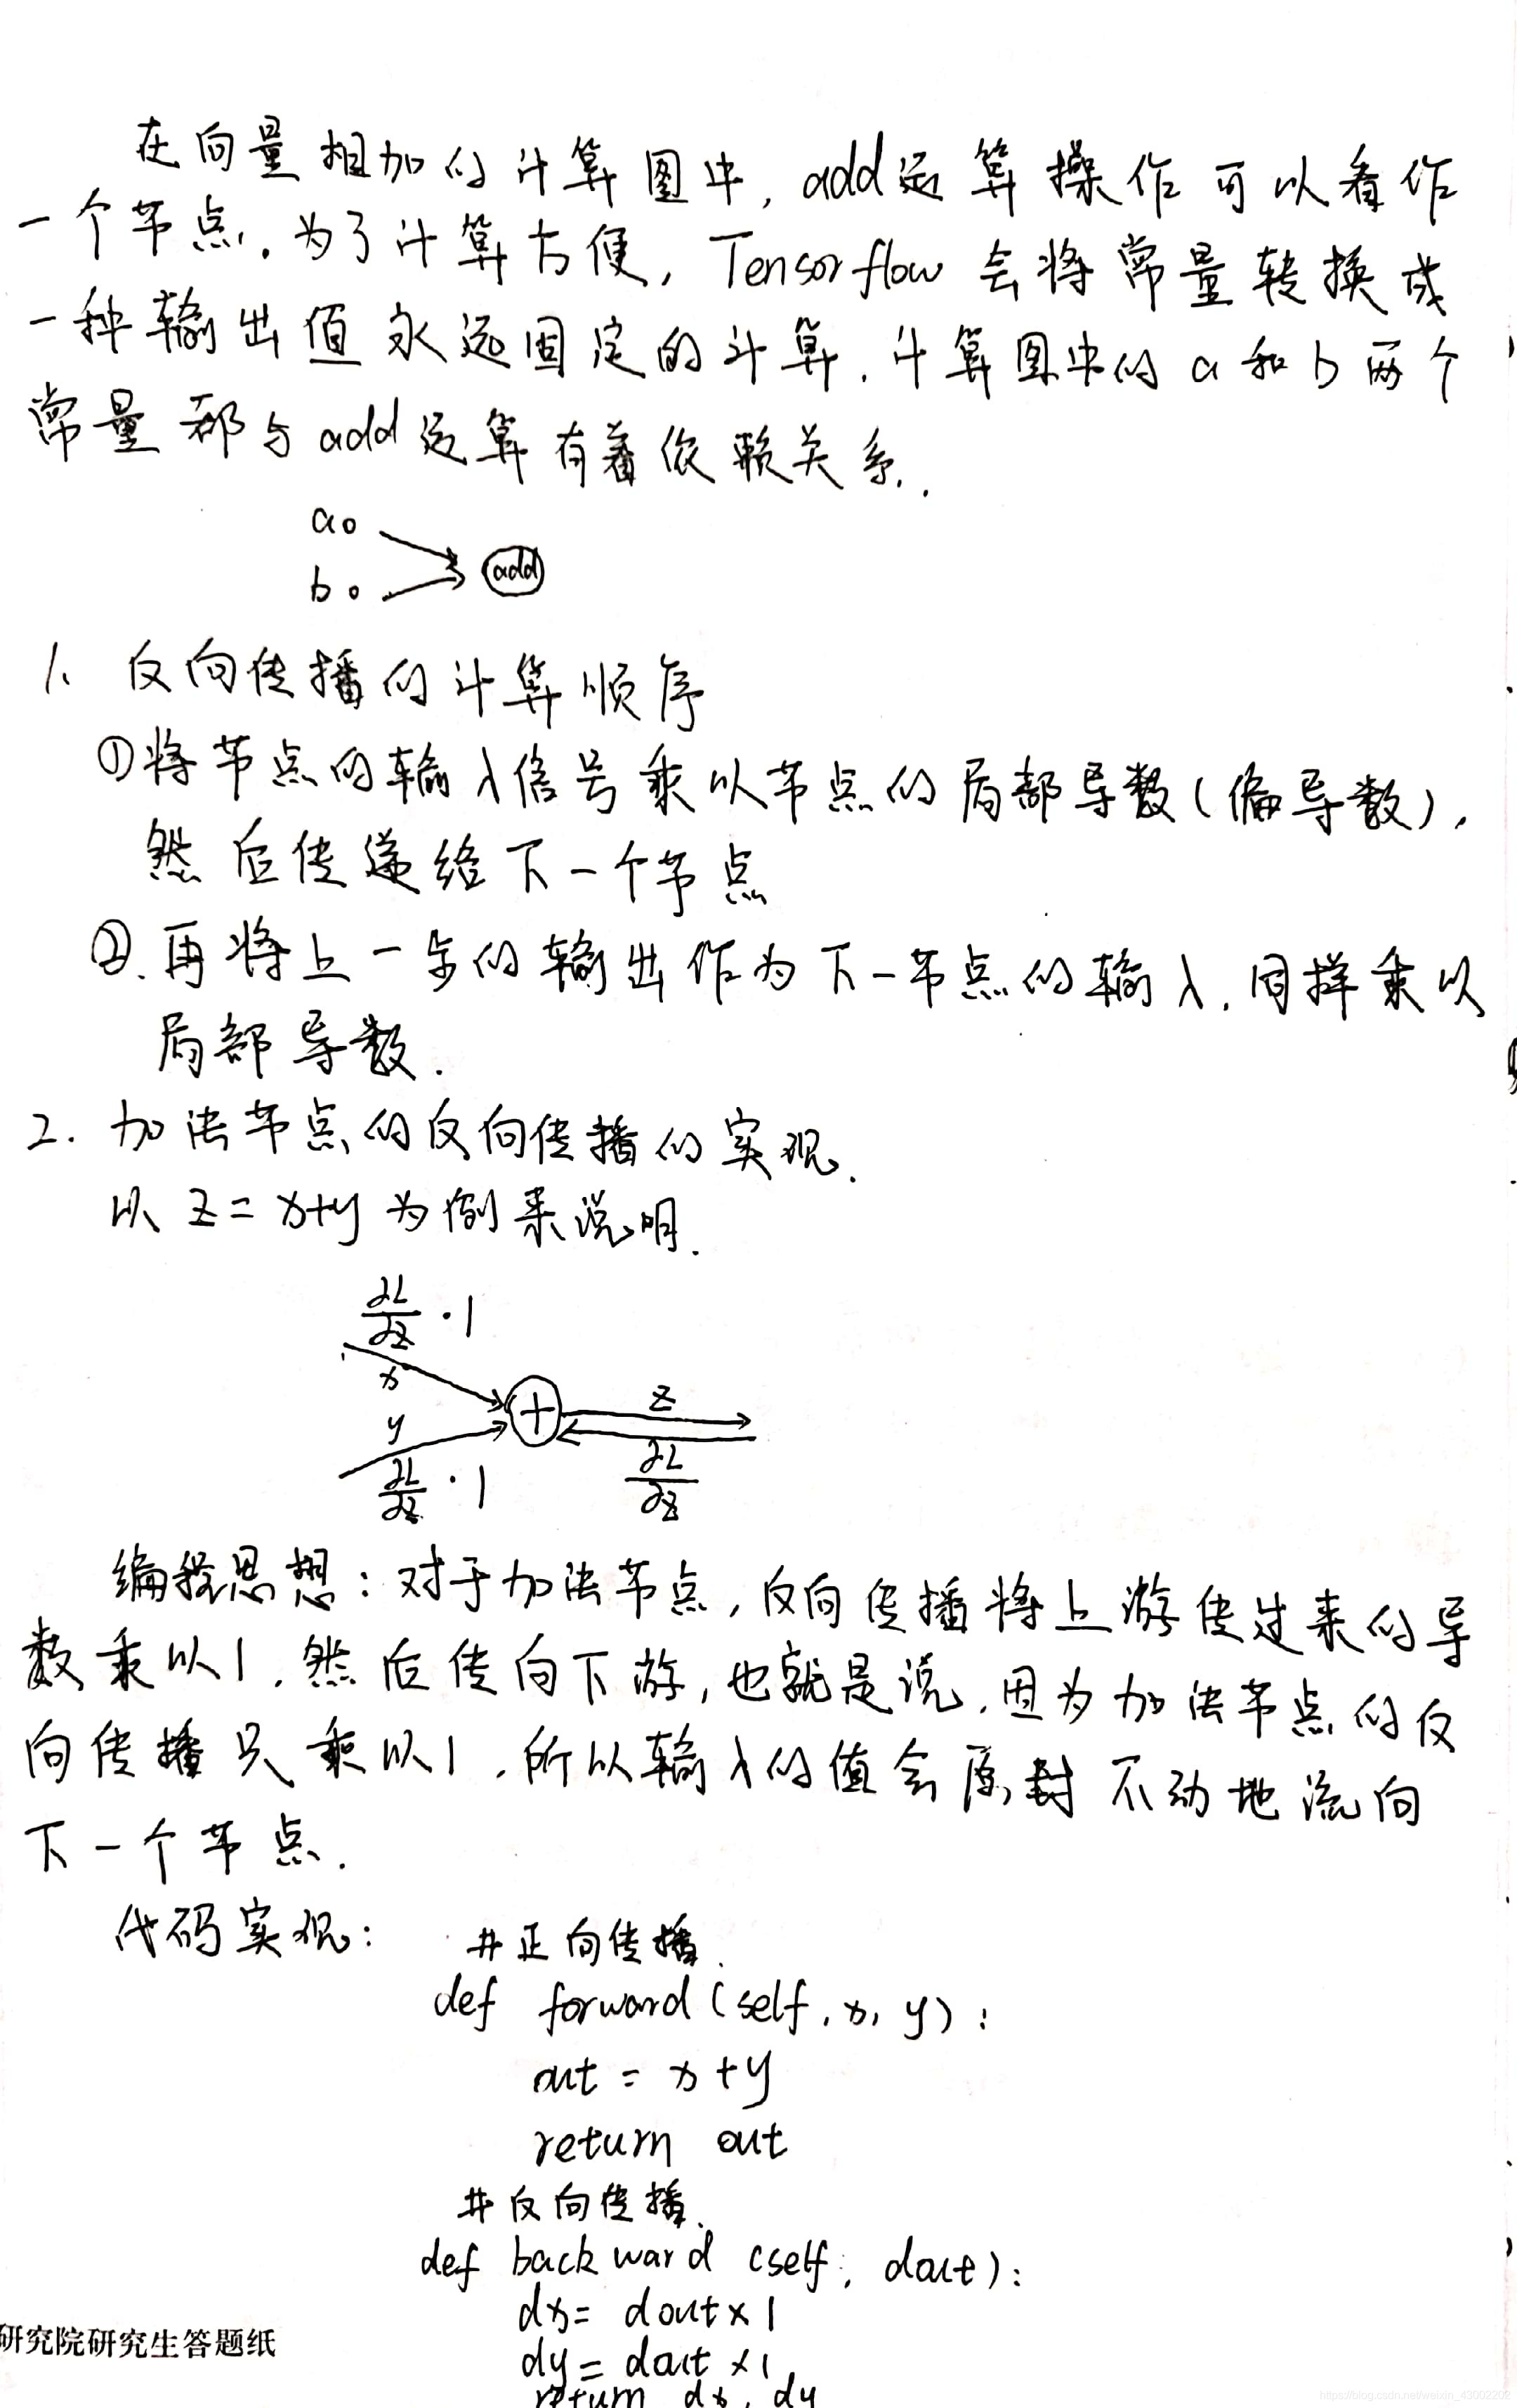 在向量相加的计算图中, add运算操作可以看作
一个节点. 为了计算方便, Tensorflow 会将常量转换成
一种输出值永远固定的计算. 计算图中的 a 和 b 两个
常量都与 add 运算有着依赖关系.
a
b
add
1. 反向传播的计算顺序
①将节点的输入信号乘以节点的局部导数(偏导数),
然后传递给下一个节点
②.再将上一步的输出作为下一节点的输入. 同样乘以
局部导数.
2. 加法节点的反向传播的实现.
以 z = x+y 为例来说明.
∂L/∂z · 1
x
+
z
y
∂L/∂z · 1
∂L/∂z
编程思想: 对于加法节点, 反向传播将上游传过来的导
数乘以1, 然后传向下游, 也就是说, 因为加法节点的反
向传播只乘以1, 所以输入的值会原封不动地流向
下一个节点.
代码实现:
#正向传播.
def forward (self, x, y):
out = x + y
return out
#反向传播.
def backward (self, dout):
dx = dout × 1
研究院研究生答题纸
dy = dout × 1
return dx, dy
https://blog.csdn.net/weixin_43002202